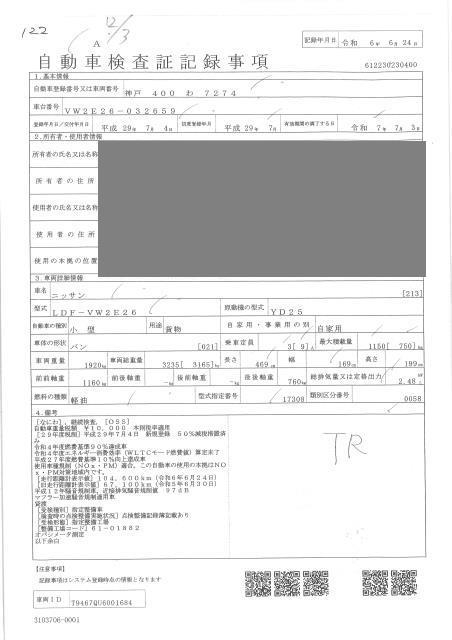 122
12/3
A
記録年月日 令和 6年 6月24日
自動車検査証記録事項
612230230400
1.基本情報
自動車登録番号又は車両番号 神戸 400 わ 7274
車台番号 VW2E26-032659
登録年月日/交付年月日 平成 29年 7月 4日 初度登録年月 平成 29年 7月 有効期間の満了する日 令和 7年 7月 3日
2.所有者・使用者情報
所有者の氏名又は名称
所有者の住所
使用者の氏名又は名称
使用者の住所
使用の本拠の位置
3.車両詳細情報
車名 ニッサン [213]
型式 LDF-VW2E26 原動機の型式 YD25
自動車の種別 小型 用途 貨物 自家用・事業用の別 自家用
車体の形状 バン [021] 乗車定員 3[ 9]人 最大積載量 1150[ 750]kg
車両重量 1920kg 車両総重量 3235[ 3165]kg 長さ 469cm 幅 169cm 高さ 199cm
前前軸重 1160kg 前後軸重 -kg 後前軸重 -kg 後後軸重 760kg 総排気量又は定格出力 2.48L
燃料の種類 軽油 型式指定番号 17308 類別区分番号 0058
4.備考
[なにわ],継続検査,[OSS]
自動車重量税額 ¥10,000 本則税率適用
[29年度税制]平成29年7月4日 新規登録 50%減税措置済
み
令和4年度燃費基準90%達成車
令和4年度エネルギー消費効率(WLTCモード燃費値)算定未了
平成27年度燃費基準10%向上達成車
使用車種規制(NOx・PM)適合,この自動車の使用の本拠はNO
x・PM対策地域内です。
[走行距離計表示値]104,600km(令和6年6月24日)
[旧走行距離計表示値]67,100km(令和5年6月30日)
平成12年騒音規制車,近接排気騒音規制値 97dB
マフラー加速騒音規制適用車
[受検種別]指定整備車
[検査時の点検整備実施状況]点検整備記録簿記載あり
[受検形態]指定整備工場
[整備工場コード]61-01882
オパシメータ測定
以下余白
TR
【注意事項】
記録事項はシステム登録時点の情報となります
車両ID T9467QU6001684
3103706-0001